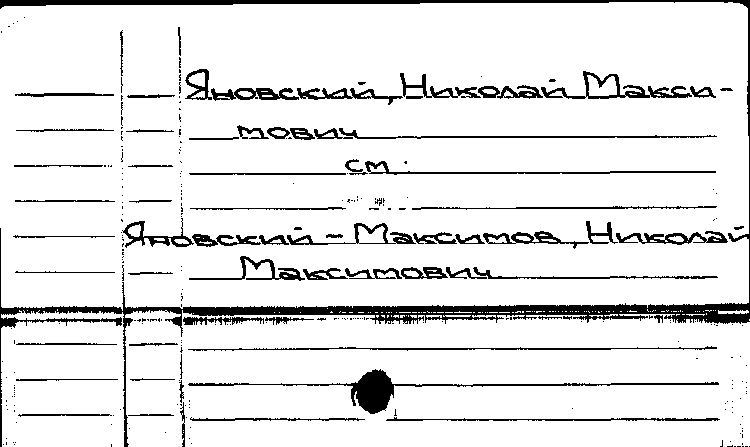 Яновский, Николай Макси-
мович
см.:
Яновский - Максимов, Николай
Максимович